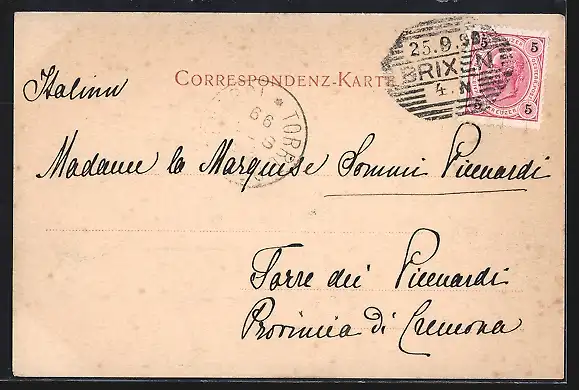 CORRESPONDENZ-KARTE
25.9.99
BRIXEN
4. N
5 5
5 5
KREUZER
TORRE
99
Italien
Madame la Marquise Sommi Picenardi
Torre dei Picenardi
Provincia di Cremona